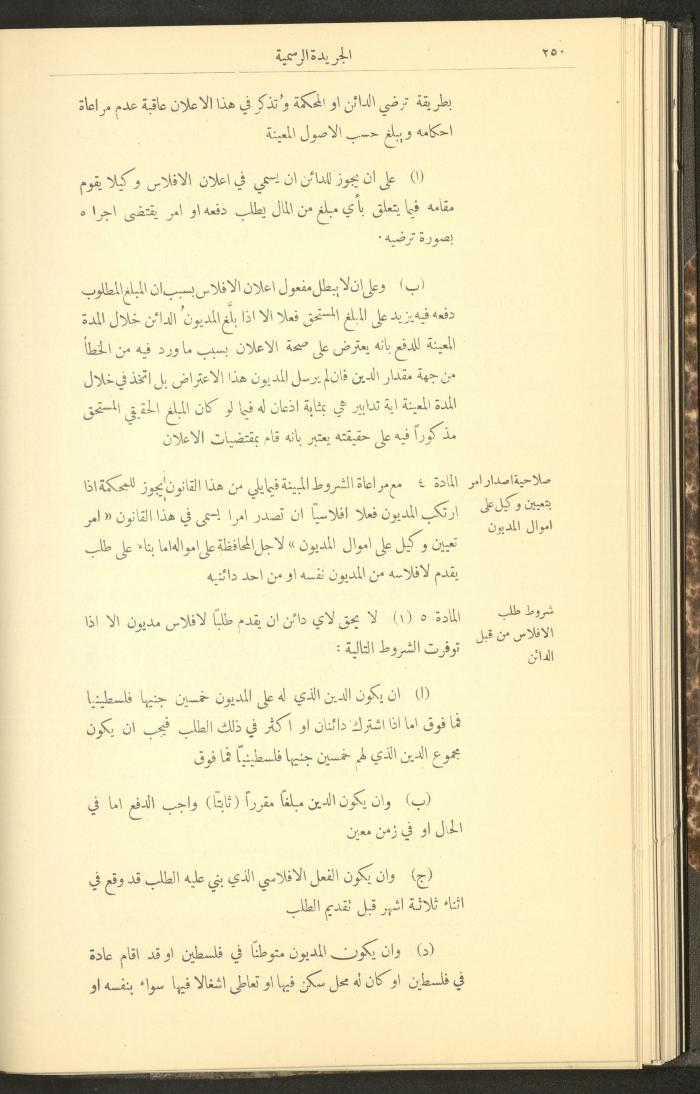 ٢٥٠
الجريدة الرسمية
بطريقة ترضي الدائن او المحكمة وتُذكر في هذا الاعلان عاقبة عدم مراعاة
احكامه ويبلغ حسب الاصول المعينة
(ا) على ان يجوز للدائن ان يسمي في اعلان الافلاس وكيلا يقوم
مقامه فيما يتعلق بأي مبلغ من المال يطلب دفعه او امر يقتضى اجراءه
بصورة ترضيه.
(ب) وعلى ان لا يبطل مفعول اعلان الافلاس بسبب ان المبلغ المطلوب
دفعه فيه يزيد على المبلغ المستحق فعلا الا اذا بلَّغ المديونُ الدائن خلال المدة
المعينة للدفع بانه يعترض على صحة الاعلان بسبب ما ورد فيه من الخطأ
من جهة مقدار الدين فان لم يرسل المديون هذا الاعتراض بل اتخذ في خلال
المدة المعينة اية تدابير هي بمثابة اذعان له فيما لو كان المبلغ الحقيقي المستحق
مذكوراً فيه على حقيقته يعتبر بانه قام بمقتضيات الاعلان
صلاحية اصدار امر
بتعيين وكيل على
اموال المديون
المادة ٤ مع مراعاة الشروط المبينة فيما يلي من هذا القانون يجوز للمحكمة اذا
ارتكب المديون فعلا افلاسيًا ان تصدر امرا يسمى في هذا القانون « امر
تعيين وكيل على اموال المديون » لاجل المحافظة على امواله اما بناء على طلب
يقدم لافلاسه من المديون نفسه او من احد دائنيه
شروط طلب
الافلاس من قبل
الدائن
المادة ٥ (١) لا يحق لاي دائن ان يقدم طلبًا لافلاس مديون الا اذا
توفرت الشروط التالية :
(ا) ان يكون الدين الذي له على المديون خمسين جنيها فلسطينيا
فما فوق اما اذا اشترك دائنان او اكثر في ذلك الطلب فيجب ان يكون
مجموع الدين الذي لهم خمسين جنيها فلسطينيًا فما فوق
(ب) وان يكون الدين مبلغًا مقرراً (ثابتًا) واجب الدفع اما في
الحال او في زمن معين
(ج) وان يكون الفعل الافلاسي الذي بني عليه الطلب قد وقع في
اثناء ثلاثة اشهر قبل تقديم الطلب
(د) وان يكون المديون متوطنًا في فلسطين او قد اقام عادة
في فلسطين او كان له محل سكن فيها او تعاطى اشغالا فيها سواء بنفسه او